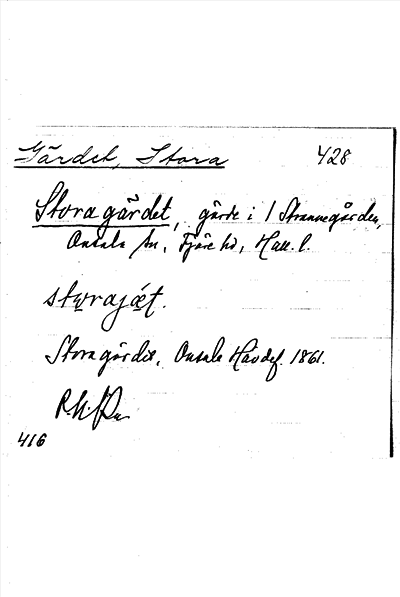 Gärdet, Stora 428
Stora gärdet, gärde i 1 Strannegården,
Onsala sn, Fjäre hd, Hall. l.
sturajæt.
Stora gärdet, Onsala Havdef. 1861.
416